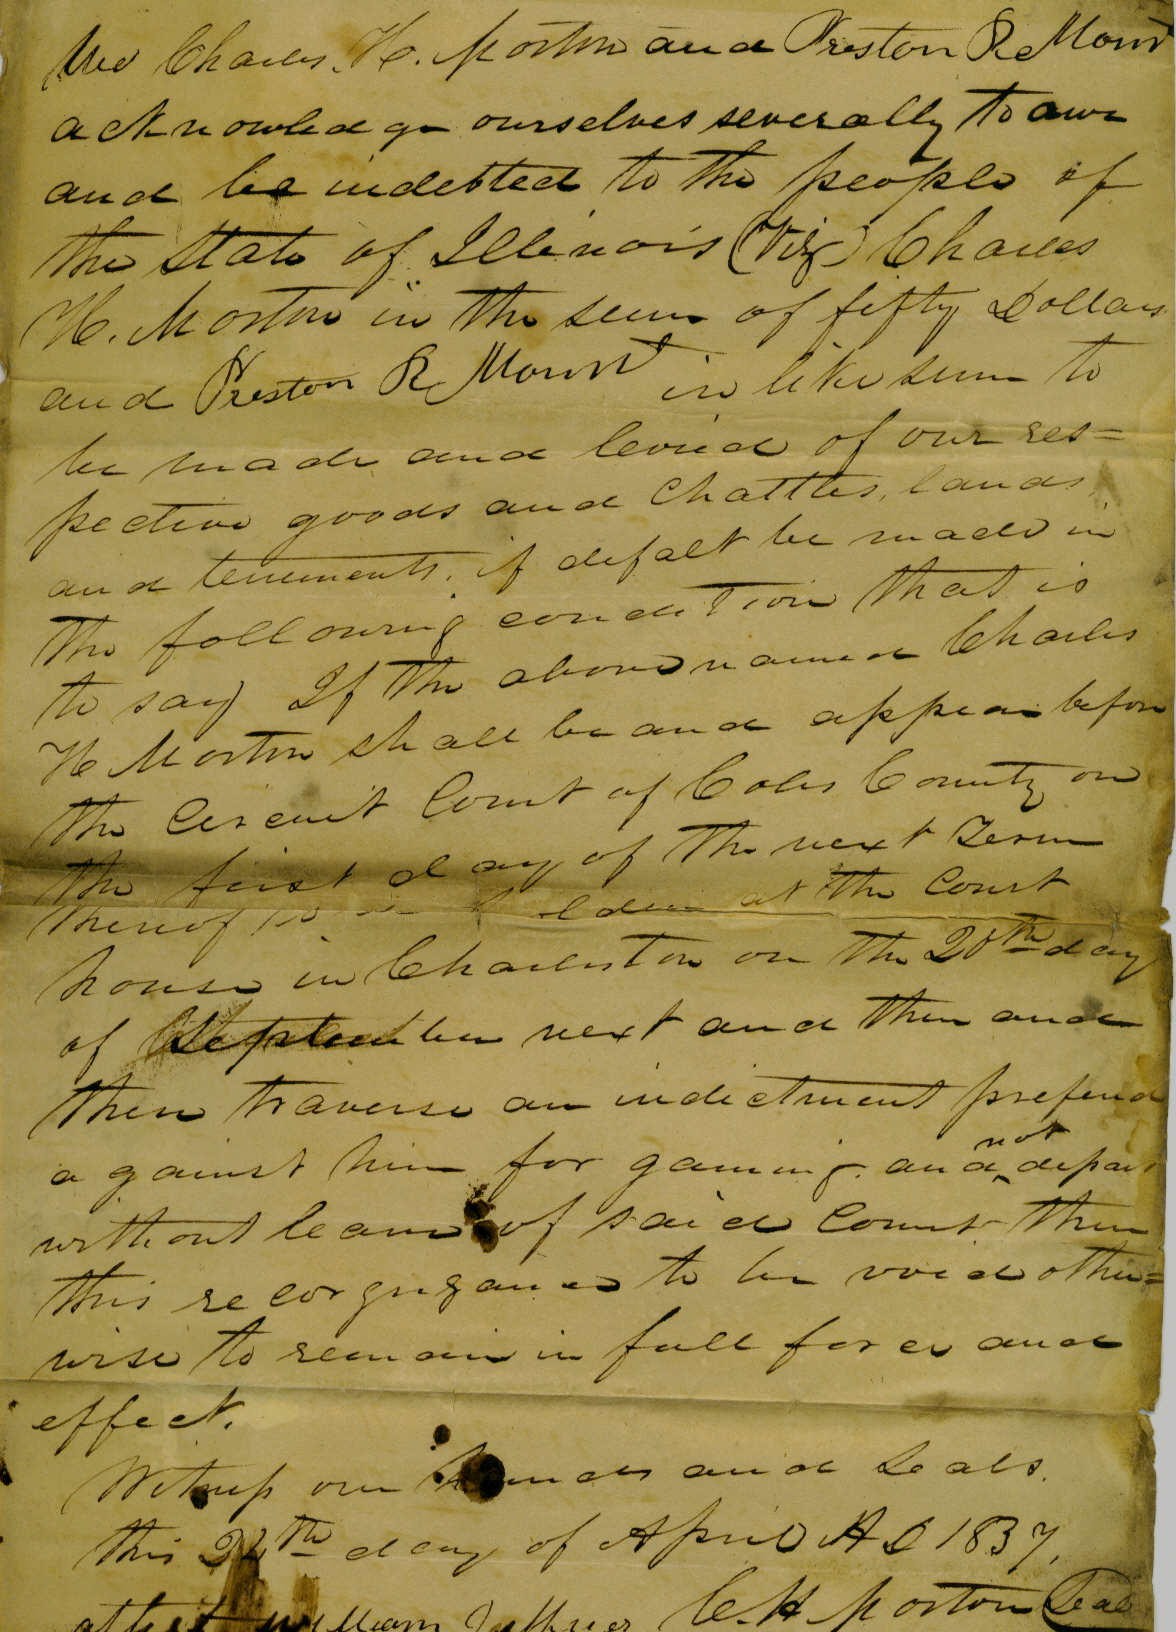 We Charles H. Morton and Preston R Mount
acknowledge ourselves severally to owe
and be indebted to the people of
the State of Illinois (Viz) Charles
H. Morton in the sum of fifty Dollars
and Preston R Mount in like sum to
be made and levied of our res=
pective goods and Chattles, lands
and tenements, if defalt be made in
the following condition that is
to say If the above named Charles
H Morton shall be and appear before
the Circuit Court of Coles County on
the first day of the next Term
thereof to be holden at the Court
house in Charleston on the 20th day
of September next and then and
there traverse an indictment prefered
against him for gaming and not depart
without leave of said Court then
this recognizance to be void other=
wise to remain in full force and
effect.
Witness our hands and Seals.
this 24th day of April A D 1837.
attest William C. H Morton Seal